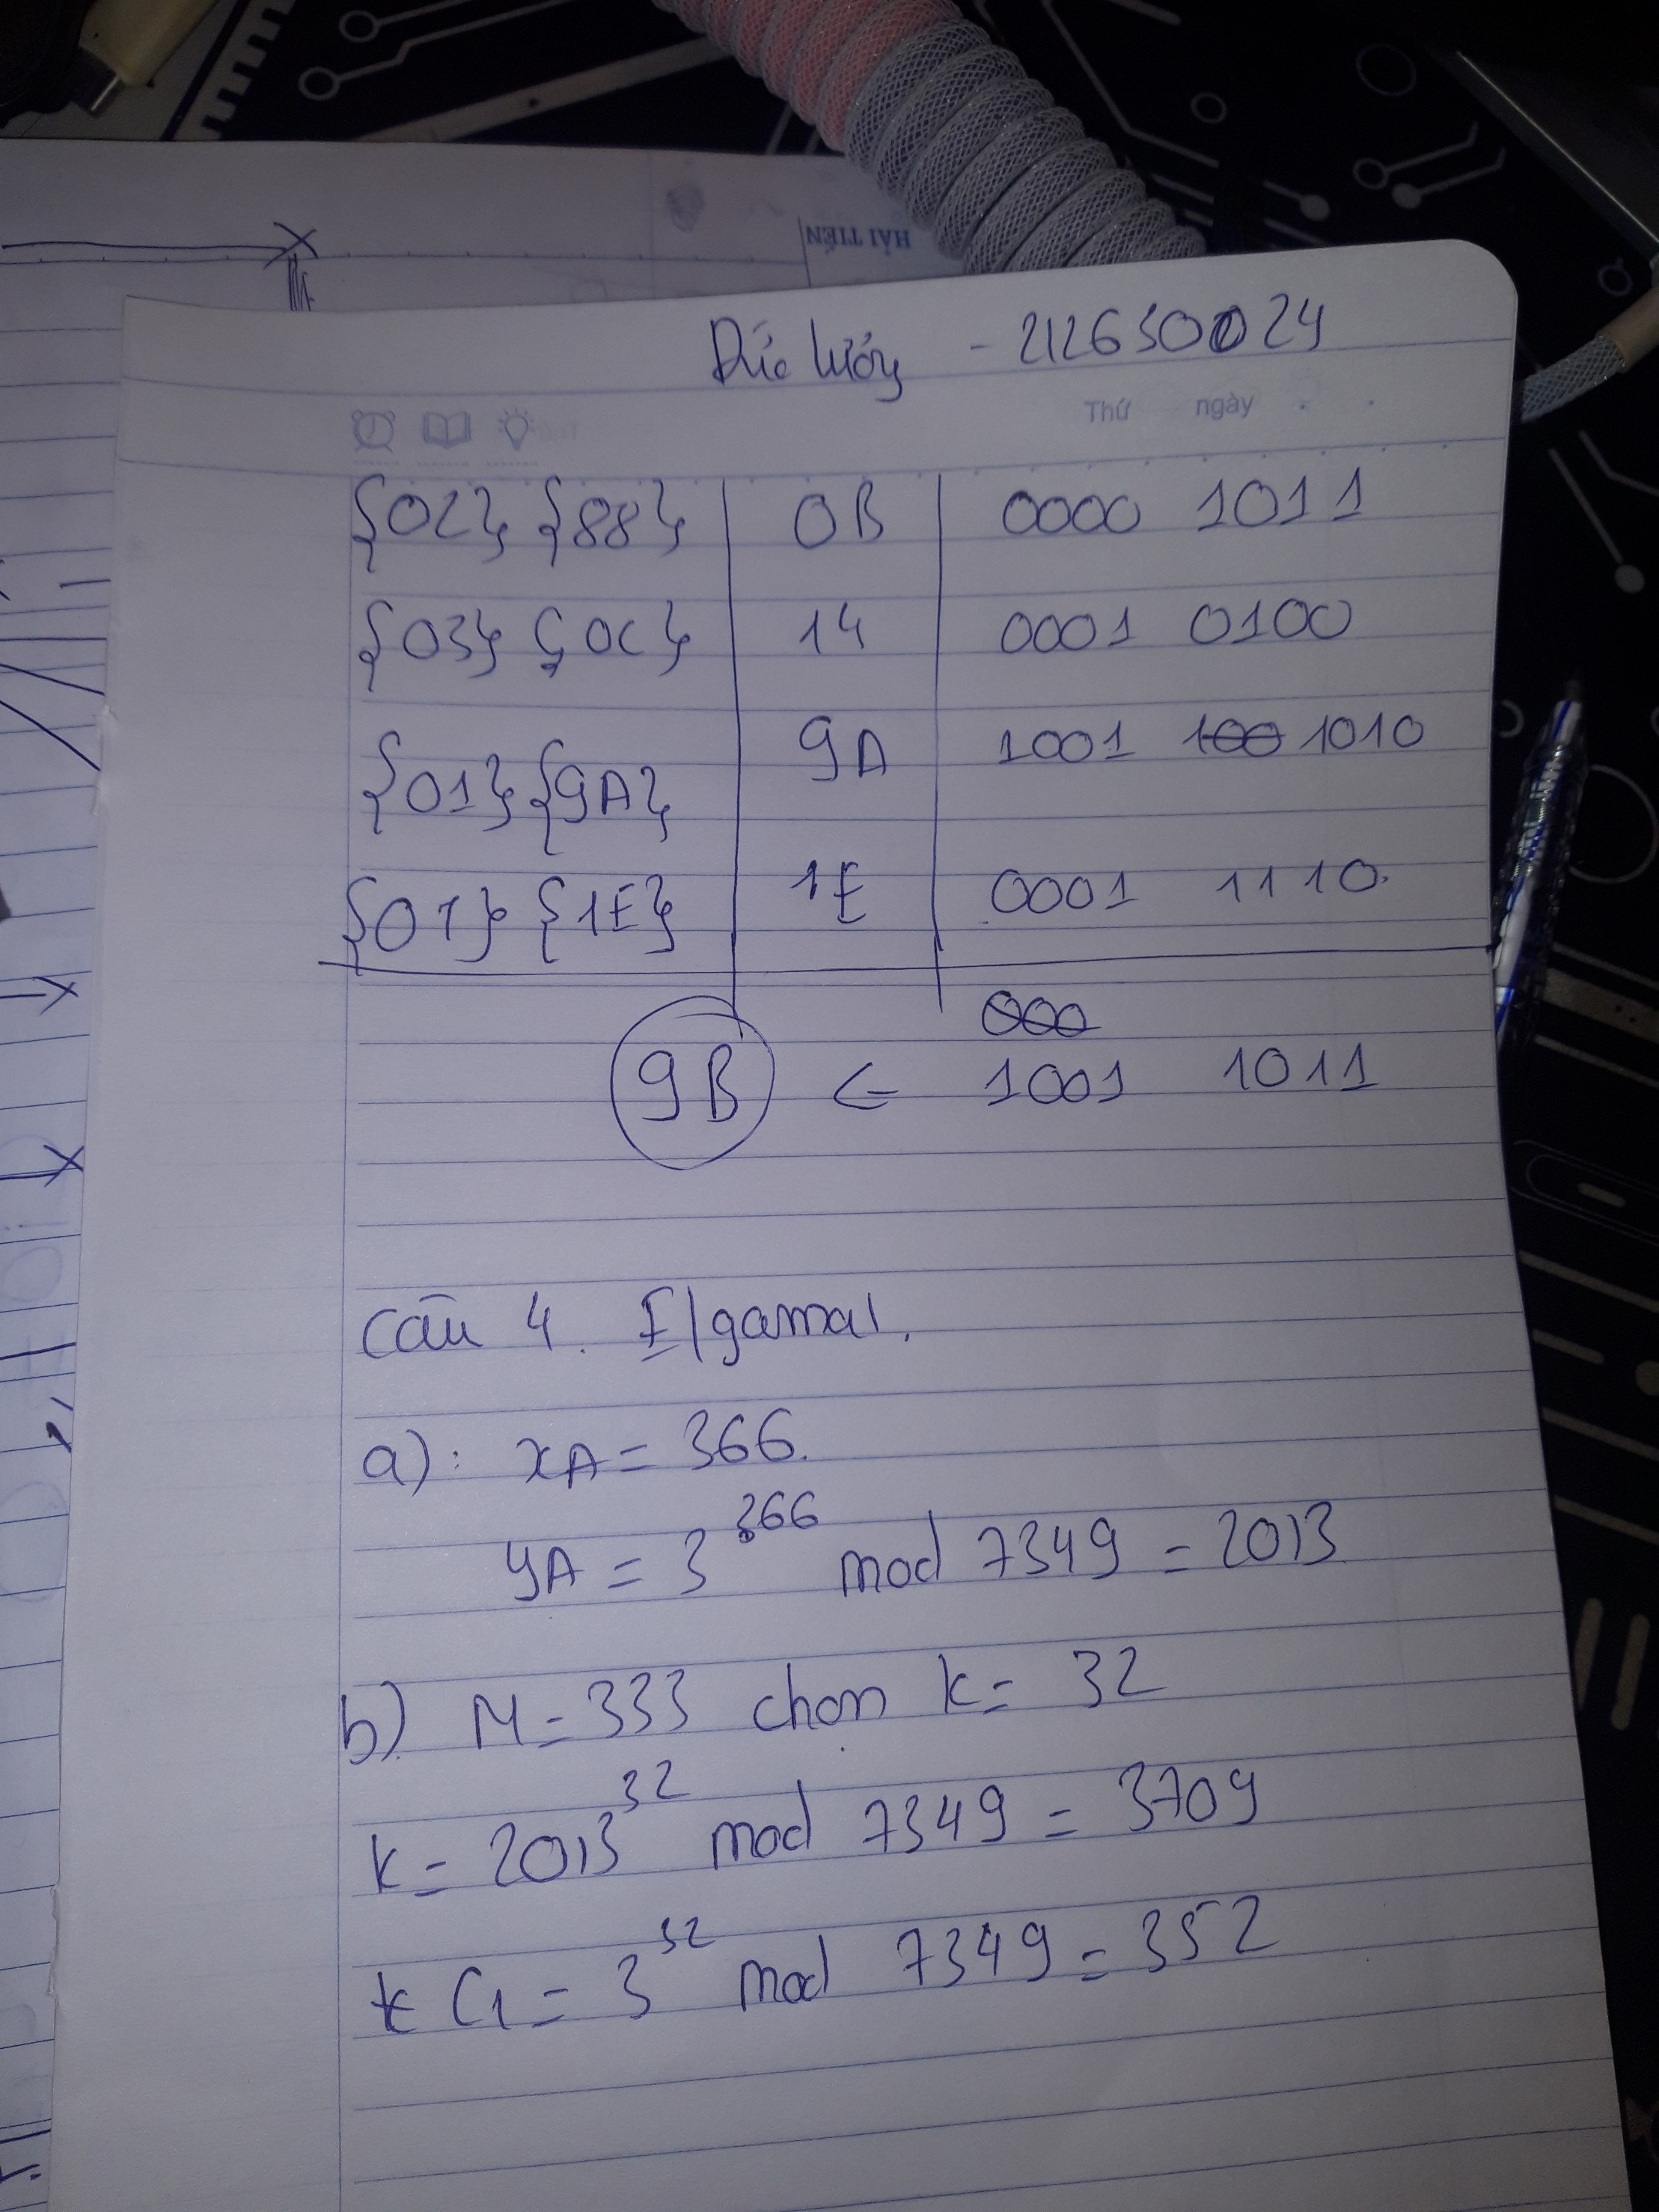 HẢI TIẾN
Đức Lương - 212630024
Thứ ngày
{02} {88} 0B 0000 1011
{03} {0C} 14 0001 0100
{01} {9A} 9A 1001 100 1010
{01} {1E} 1E 0001 1110
000
9B ← 1001 1011
Câu 4. Elgamal.
a): xA = 366.
yA = 3^366 mod 7349 = 2013
b) M = 333 chọn k = 32
K = 2013^32 mod 7349 = 3709
C1 = 3^32 mod 7349 = 352